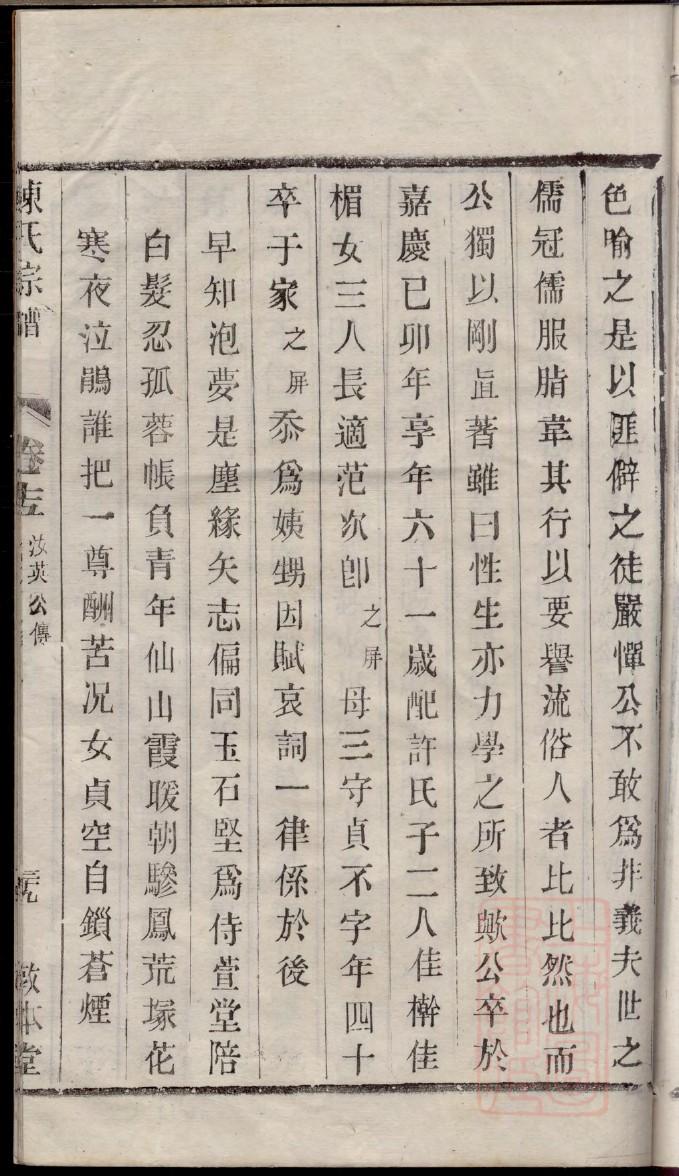 色喻之是以匪僻之徒嚴憚公不敢爲非義夫世之
儒冠儒服脂韋其行以要譽流俗人者比比然也而
公獨以剛直著雖曰性生亦力學之所致歟公卒於
嘉慶已卯年享年六十一歲配許氏子二人佳榦佳
楣女三人長適范次卽之屏母三守貞不字年四十
卒于家之屏忝爲姨甥因賦哀詞一律係於後
早知泡夢是塵緣矢志偏同玉石堅爲侍萱堂陪
白髮忍孤蓉帳負青年仙山霞暖朝驂鳳荒塚花
寒夜泣鵑誰把一尊酬苦况女貞空自鎖蒼煙
陳氏宗譜
卷十五
汝英公傳
敬本堂